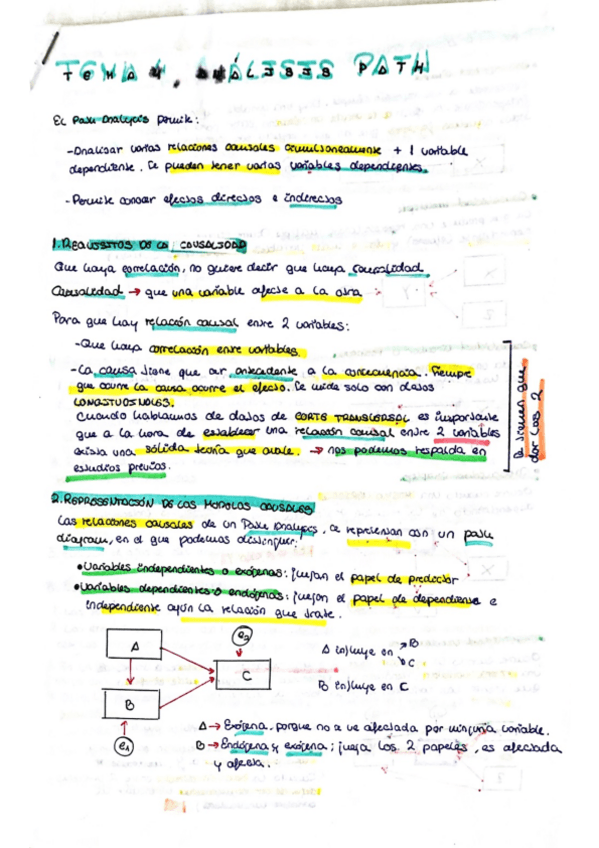 TEMA 4. ANÁLISIS PATH
El Path Analysis permite:
-Analizar varias relaciones causales simultáneamente + 1 variable
dependiente. Se pueden tener varias variables dependientes.
-Permite conocer efectos directos e indirectos
1. REQUISITOS DE LA CAUSALIDAD
Que haya correlación, no quiere decir que haya causalidad.
Causalidad → que una variable afecte a la otra
Para que hay relación causal entre 2 variables:
-Que haya correlación entre variables.
-La causa tiene que ser antecedente a la consecuencia. Siempre
que ocurre la causa ocurre el efecto. Se mide solo con datos
LONGITUDINALES.
Cuando hablamos de datos de CORTE TRANSVERSAL es importante
que a la hora de establecer una relación causal entre 2 variables
exista una sólida teoría que avale. → nos podemos respalda en
estudios previos.
se tienen que
dar las 2
2. REPRESENTACIÓN DE LOS MODELOS CAUSALES
Las relaciones causales de un Path Analysis, se representan con un path
diagram, en el que podemos distinguir:
•Variables independientes o exógenas: juegan el papel de predictor
•Variables dependientes o endógenas: juegan el papel de dependiente e
independiente según la relación que trate.
A
e2
C
B
e1
A influye en B
C
B influye en C
A → Exógena, porque no se ve afectada por ninguna variable.
B → Endógena y exógena; juega los 2 papeles, es afectada
y afecta.